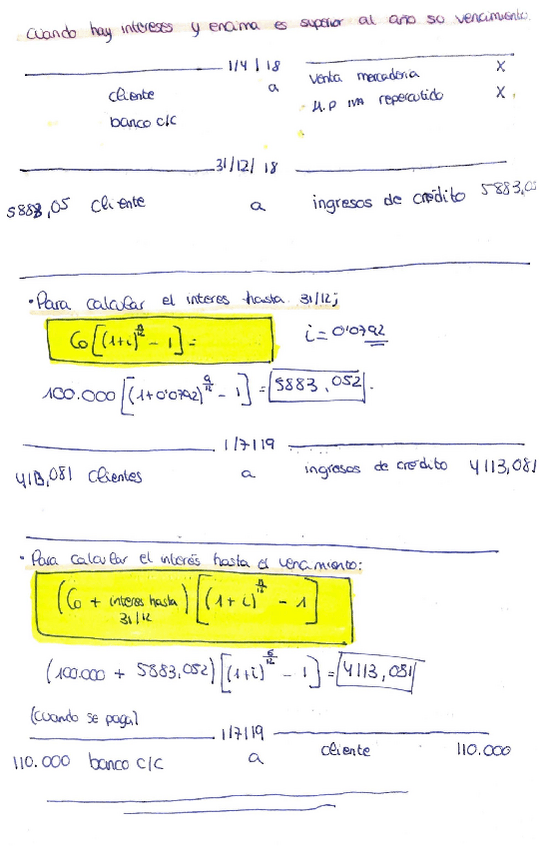 cuando hay intereses y encima es superior al año su vencimiento.
1/4/18
cliente a venta mercaderia X
banco c/c H.P IVA repercutido X
31/12/18
5883,05 cliente a ingresos de crédito 5883,05
• Para calcular el interes hasta 31/12;
Co[(1+i)^n/12 - 1] = i = 0'0792
100.000[(1+0'0792)^9/12 - 1] = 5883,052.
1/7/19
4113,081 clientes a ingresos de credito 4113,081
• Para calcular el interés hasta el vencimiento:
(Co + interes hasta 31/12)[(1+i)^n/12 - 1]
(100.000 + 5883,052)[(1+i)^6/12 - 1] = 4113,081
(cuando se paga)
1/7/19
110.000 banco c/c a cliente 110.000